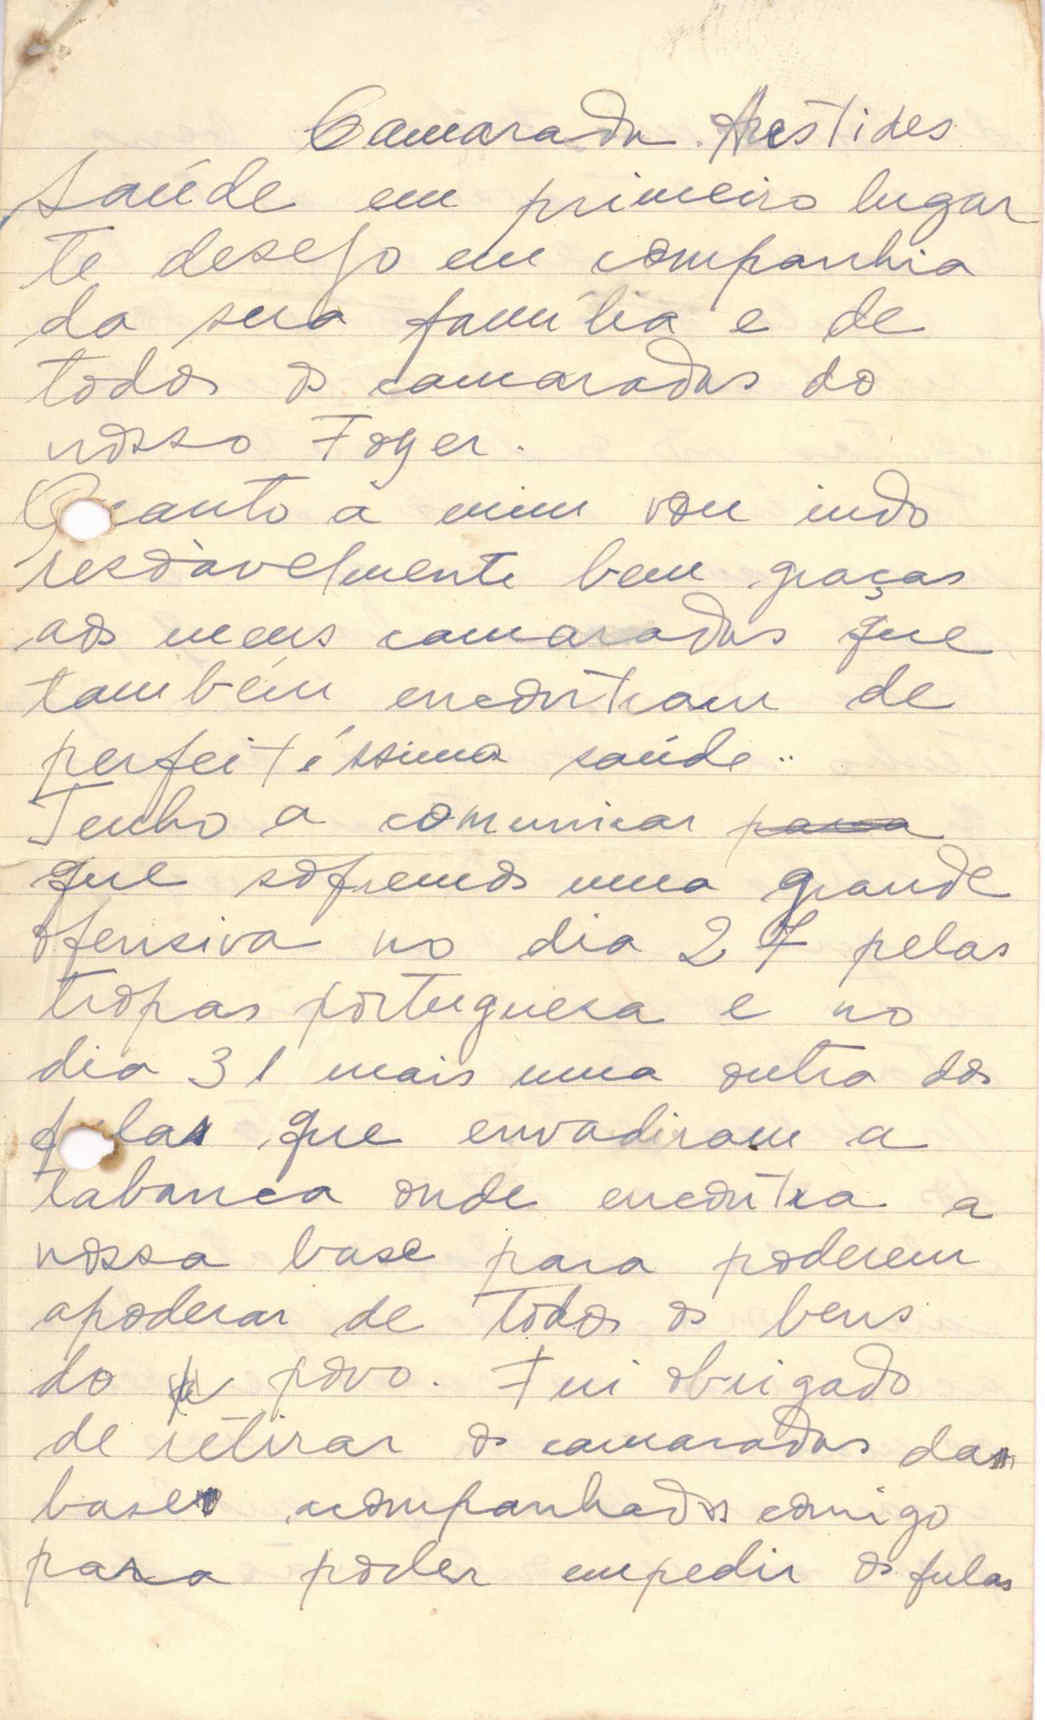 Camarada Arestides
Saúde em primeiro lugar
te desejo em companhia
da sua família e de
todos os camaradas do
nosso Foyer.
Quanto à mim vou indo
resoàvelmente bem graças
aos meus camaradas que
também encontram de
perfeitíssima saúde..
Tenho a comunicar para
que sofremos uma grande
ofensiva no dia 27 pelas
tropas portuguesa e no
dia 31 mais uma outra dos
fulas que envadiram a
tabanca onde encontra a
nossa base para poderem
apoderar de todos os bens
do povo. Fui obrigado
de retirar os camaradas da
base acompanhados comigo
para poder empedir os fulas